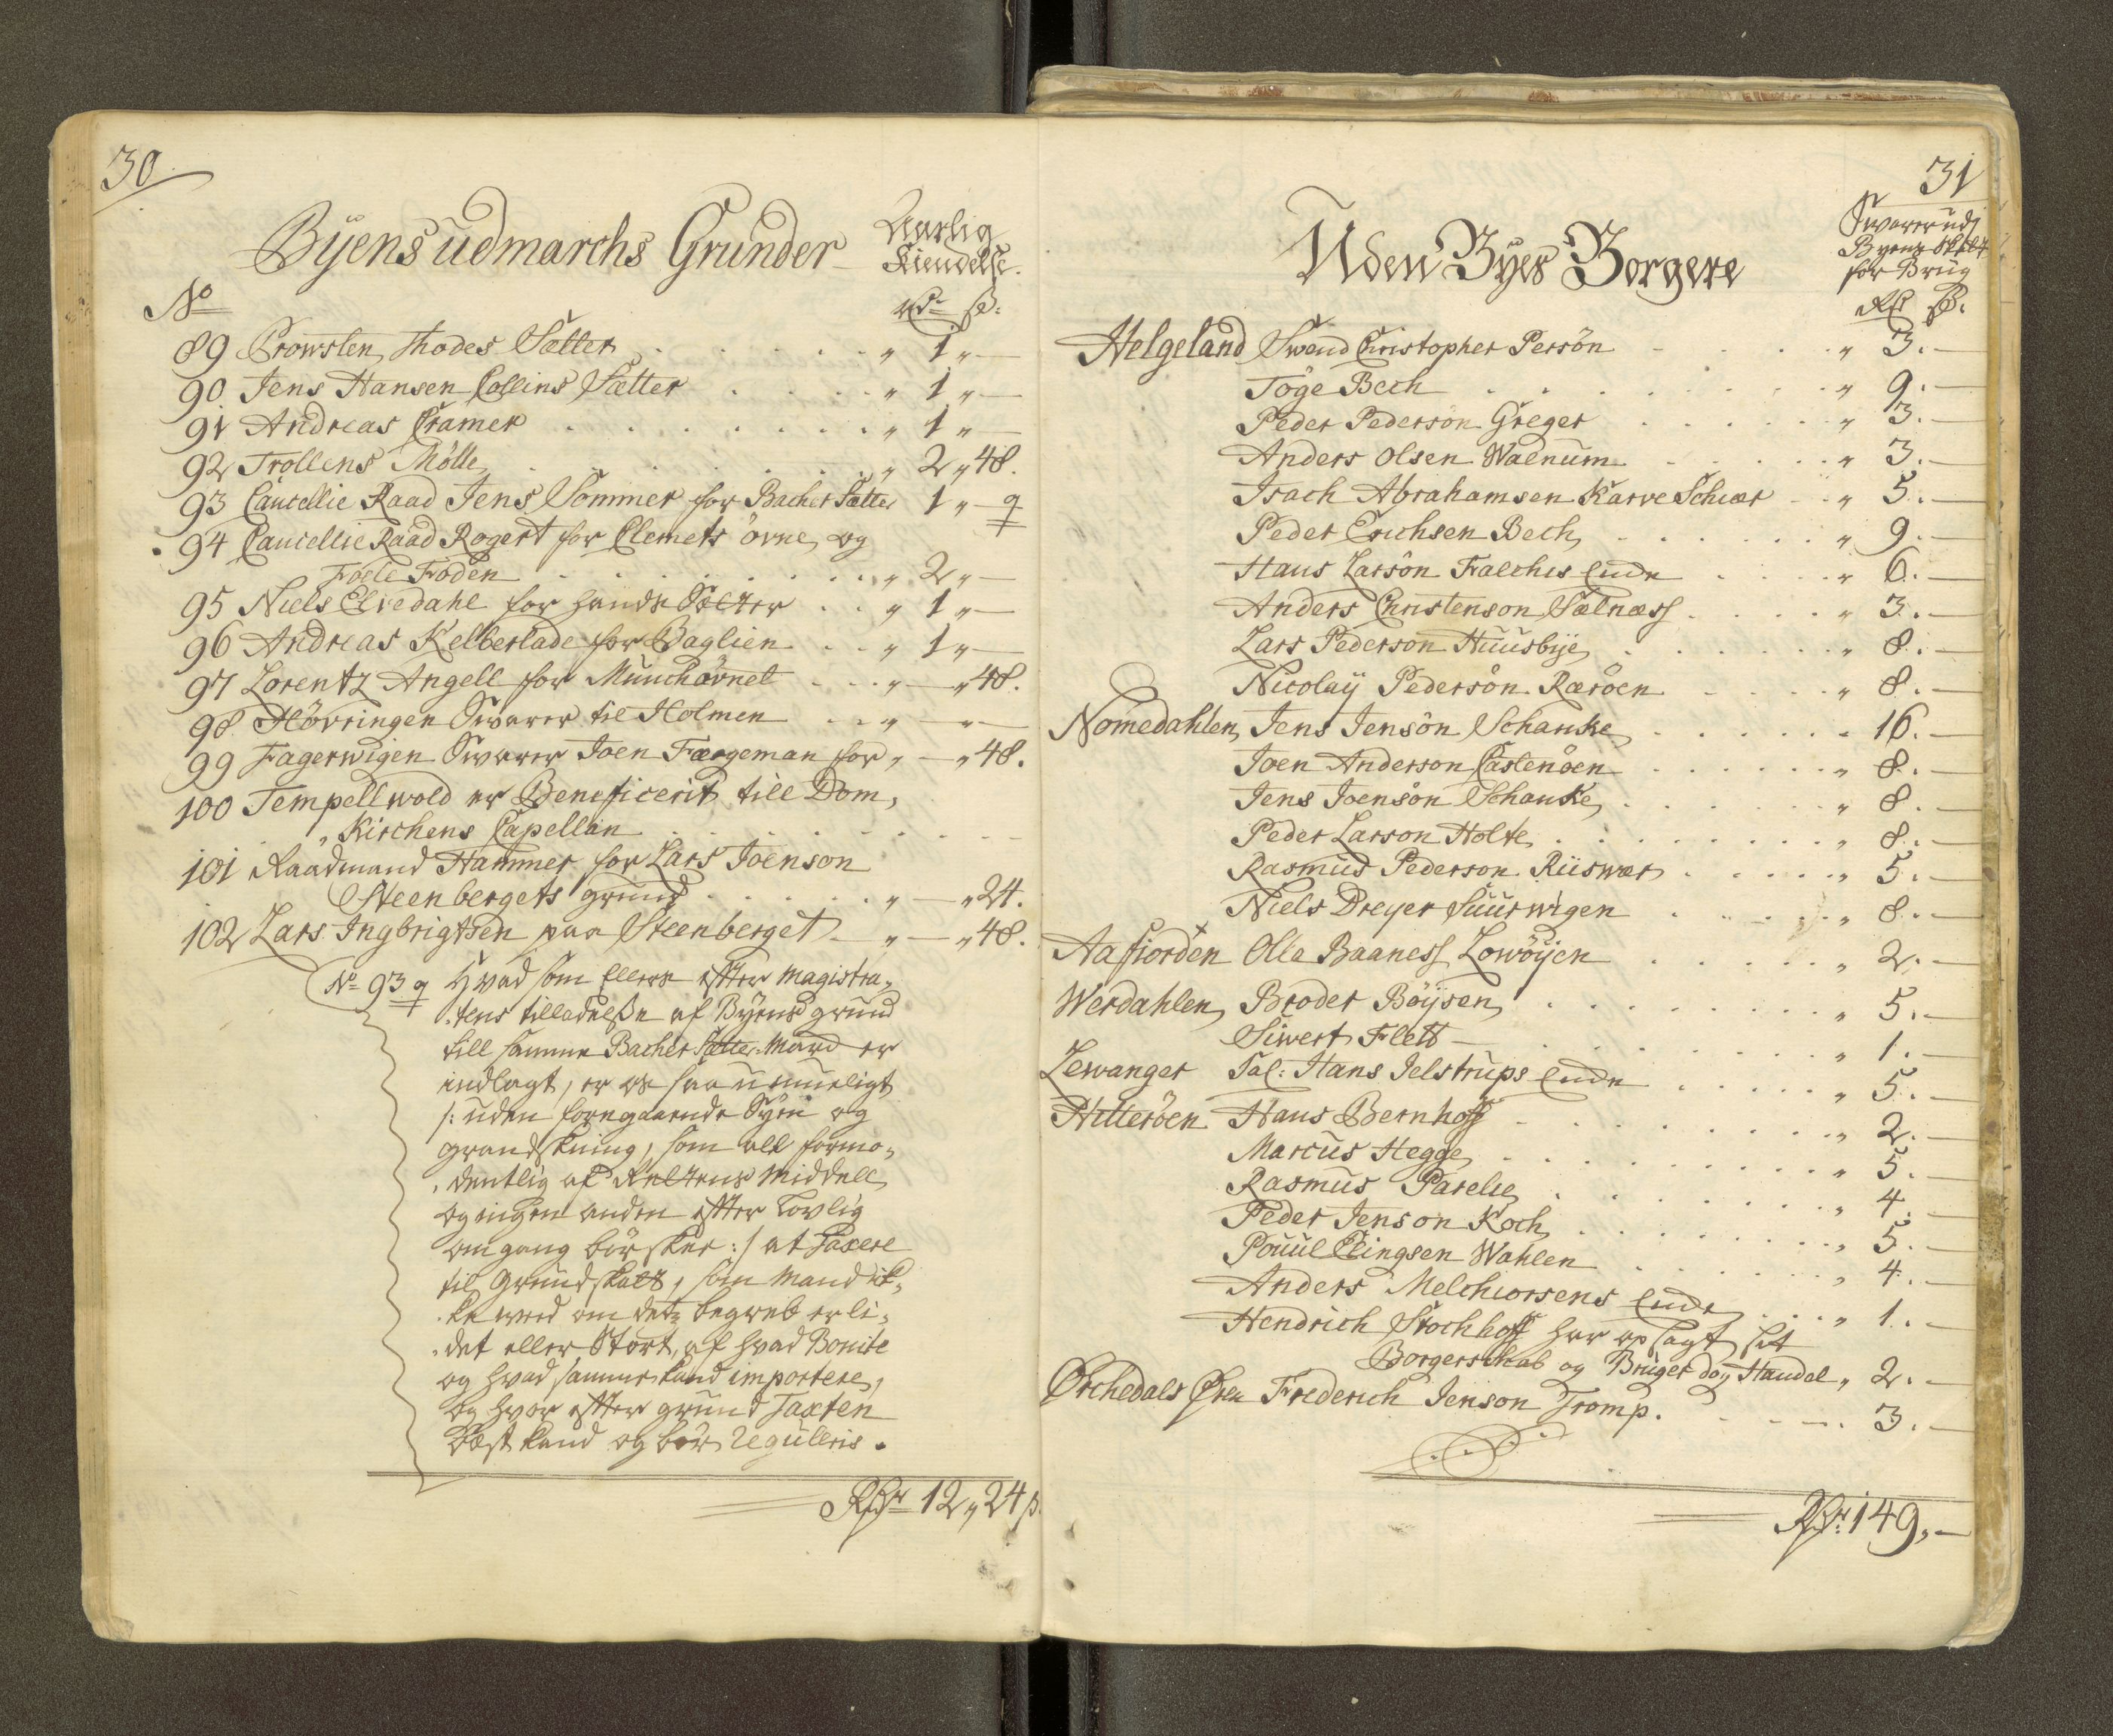 30
Byens udmarchs Grunder
Aarlig
Kiendelse.
No
rdr ß:
89 Prowsten Thodes Sætter . . . . . „ 1 „ —
90 Jens Hansen Collins Sætter . . . . „ 1 „ —
91 Andreas Cramer . . . . . . . „ 1 „ —
92 Trollens Mölle . . . . . . . „ 2 „ 48.
93 Cancellie Raad Jens Sommer for Bacher Sætter 1 „ — q
94 Cancellie Raad Rogert for Clemets övne og
Foele Foden . . . . . . . „ 2 „ —
95 Niels Elvedahl for hands Sætter . . „ 1 „ —
96 Andreas Kelberlade for Baglien . . „ 1 „ —
97 Lorentz Angell for Munchövnet . . . „ — „ 48.
98 Hövringen Swarer til Holmen . . „ — „ —
99 Fagerwigen Swarer Joen Færgeman for „ — „ 48.
100 Tempellwold er Beneficerit till Dom„
„Kirchens Capellan . . . . . . .
101 Raadmand Hammer for Lars Joenson
Steenbergets grund . . . . . „ — „ 24.
102 Lars Ingbrigtsen paa Steenberget „ — „ 48.
No 93 q Hvad som Ellers efter Magistra„
„tens tilladelsse af Byens grund
till samme Bacher Sætter Mard er
indlagt, er os saa umueligt
/: uden foregaaende Syön og
grandskning, som all formo„
„dentlig af Rettens Middell
og ingen anden efter Lovlig
omgang bör skee :/ at Taxere
til Grundskatt, som Mand ik„
„ke weed om dets begreb er li„
„det eller Stort, af hvad Bonite
og hvad samme kand importere,
og hvor efter grund Taxten
best kand og bör Reguleris.
Rdr 12 „ 24 ß.
31
Uden Byes Borgere
Swarer udj
Byens Skatt
for Brug
Rd ß.
Helgeland Swend Christopher Persön . . . „ 3. —
Töge Bech . . . . . . . „ 9. —
Peder Pederson Greger . . . . . „ 3. —
Anders Olsen Walnum . . . . . „ 3. —
Isach Abrahamsen Karve Schiær . . „ 5. —
Peder Erichsen Bech . . . . . . „ 9. —
Hans Larsön Falches Encke . . . . „ 6. —
Anders Christenson Sælnæss . . . . „ 3. —
Lars Pederson Huusbye . . . . . . „ 8. —
Nicolay Pedersön Ræröen . . . . „ 8. —
Nomedahlen Jens Jensön Schanke . . . . . . 16. —
Joen Anderson Castenöen . . . . . „ 8. —
Jens Joensön Schanke . . . . . . „ 8. —
Peder Larson Holte . . . . . . . „ 8. —
Rasmus Pederson Riiswær . . . . . „ 5. —
Niels Dreyer Suurwigen . . . . . „ 8. —
Aafiorden Olle Baaness Lowöyen . . . . . „ 2. —
Werdahlen Broder Böysen . . . . . . . „ 5. —
Siwert Flett . . . . . . . „ 1. —
Lewanger Sal: Hans Jelstrups Encke . . . . . „ 5. —
Hitteröen Hans Bernhoff . . . . . . . „ 2. —
Marcus Hegge . . . . . . . . „ 5. —
Rasmus Parelie . . . . . . . „ 4. —
Peder Jenson Koch . . . . . . . „ 5. —
Pouul Ellingsen Wahlen . . . . . . „ 4. —
Anders Melchiorsens Encke . . . „ 1. —
Hendrich Stochhoff har op sagt sit
Borgerskab og Bruger dog Handel „ 2. —
Orchedals Øren Frederich Jenson Tromp. . . . . 3. —
Rdr: 149„ —